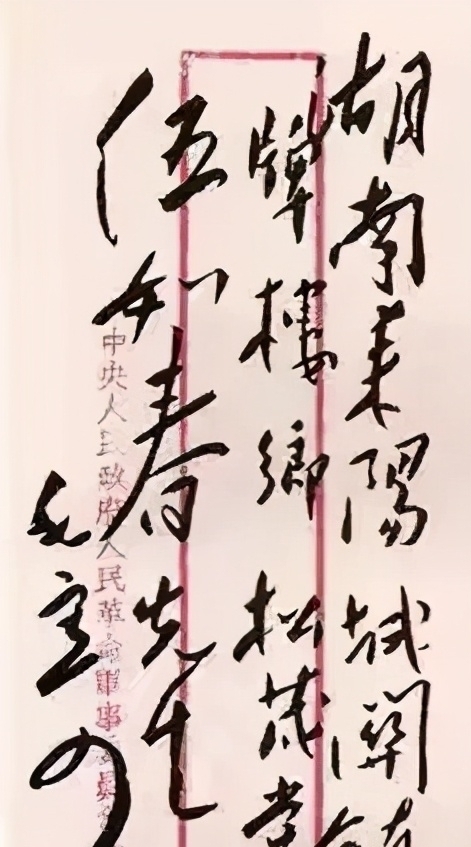 胡南耒陽城關
牌樓鄉松茂堂
伍知春先生
中央人民政府人民革命軍事委員
毛